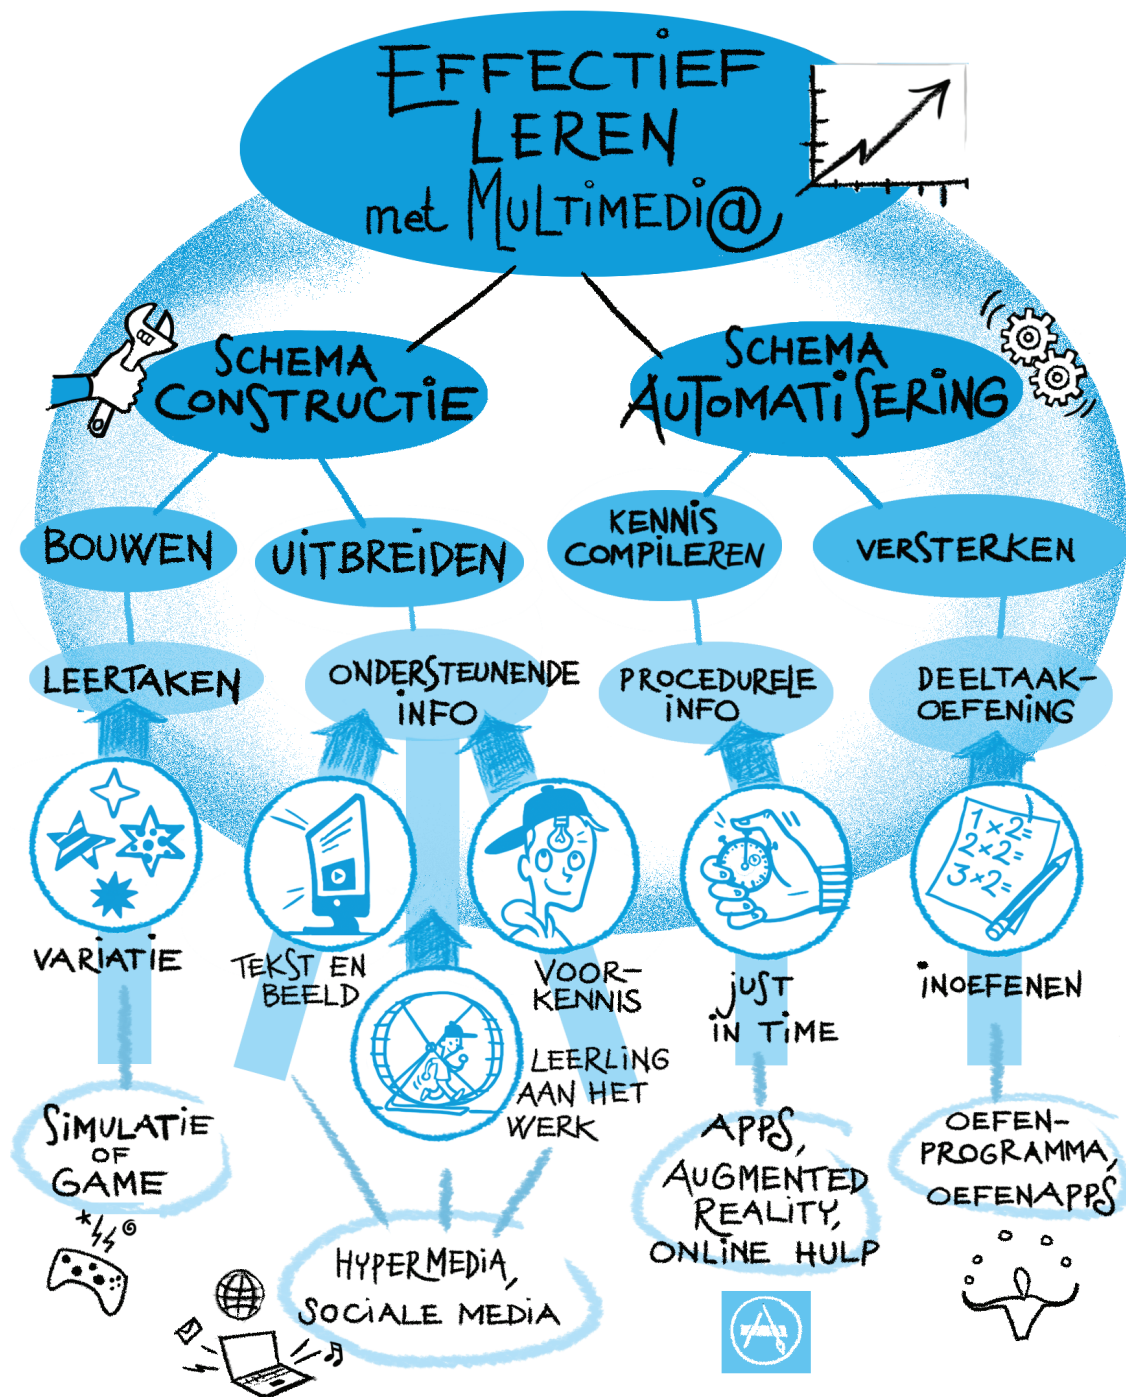 EFFECTIEF
LEREN
met MULTIMEDI@
SCHEMA
CONSTRUCTIE
SCHEMA
AUTOMATISERING
BOUWEN
UITBREIDEN
KENNIS
COMPILEREN
VERSTERKEN
LEERTAKEN
ONDERSTEUNENDE
INFO
PROCEDURELE
INFO
DEELTAAK-
OEFENING
1×2=
2×2=
3×2=
VARIATIE
TEKST EN
BEELD
VOOR-
KENNIS
JUST
IN TIME
INOEFENEN
LEERLING
AAN HET
WERK
SIMULATIE
OF
GAME
HYPERMEDIA,
SOCIALE MEDIA
APPS,
AUGMENTED
REALITY,
ONLINE HULP
OEFEN-
PROGRAMMA,
OEFENAPPS